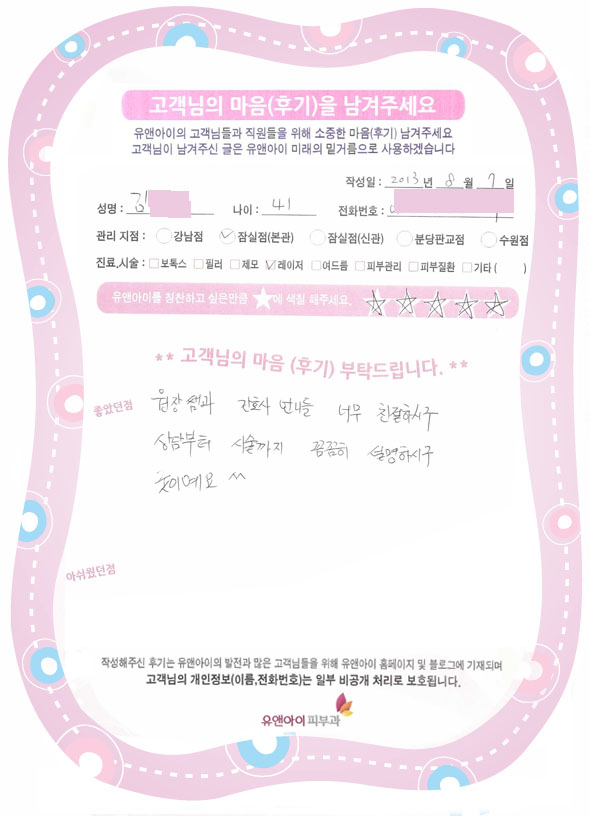 고객님의 마음(후기)을 남겨주세요
유앤아이의 고객님들과 직원들을 위해 소중한 마음(후기) 남겨주세요
고객님이 남겨주신 글은 유앤아이 미래의 밑거름으로 사용하겠습니다
작성일 : 2013년 8월 7일
성명 : 김 나이 : 41 전화번호 :
관리 지점 : 강남점 잠실점(본관) 잠실점(신관) 분당판교점 수원점
진료,시술 : 보톡스 필러 제모 레이저 여드름 피부관리 피부질환 기타 ( )
유앤아이를 칭찬하고 싶은만큼 ★에 색칠 해주세요.
** 고객님의 마음 (후기) 부탁드립니다. **
좋았던점
원장쌤과 간호사 언니들 너무 친절하시구
상담부터 시술까지 꼼꼼히 설명하시구
굿이예요 ^^
아쉬웠던점
작성해주신 후기는 유앤아이의 발전과 많은 고객님들을 위해 유앤아이 홈페이지 및 블로그에 기재되며
고객님의 개인정보(이름,전화번호)는 일부 비공개 처리로 보호됩니다.
유앤아이피부과